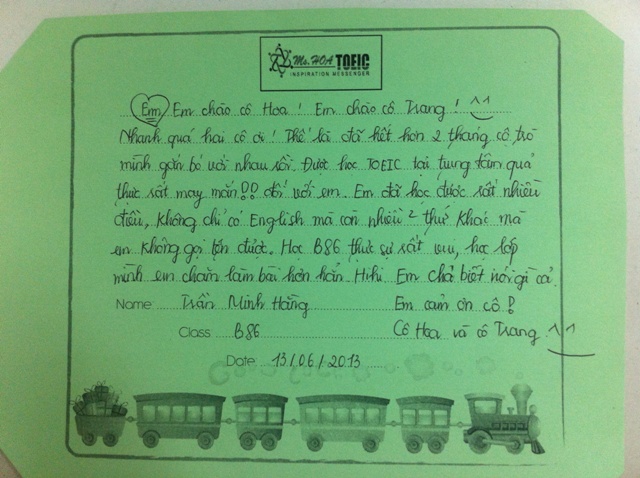 Ms. HOA TOEIC
INSPIRATION MESSENGER
Em Em chào cô Hoa! Em chào cô Trang! ^^
Nhanh quá hai cô ơi! Thế là đã hết hơn 2 tháng cô trò
mình gắn bó với nhau rồi. Được học TOEIC tại trung tâm quả
thực rất may mắn!! đối với em. Em đã học được rất nhiều
điều, không chỉ có English mà còn nhiều² thứ khác mà
em không gọi tên được. Học B86 thực sự rất vui, học lớp
mình em chăm làm bài hơn hẳn. Hihi Em chả biết nói gì cả.
Name: Trần Minh Hằng Em cảm ơn cô!
Class: B86 Cô Hoa và cô Trang ^^
Date: 13/06/2013